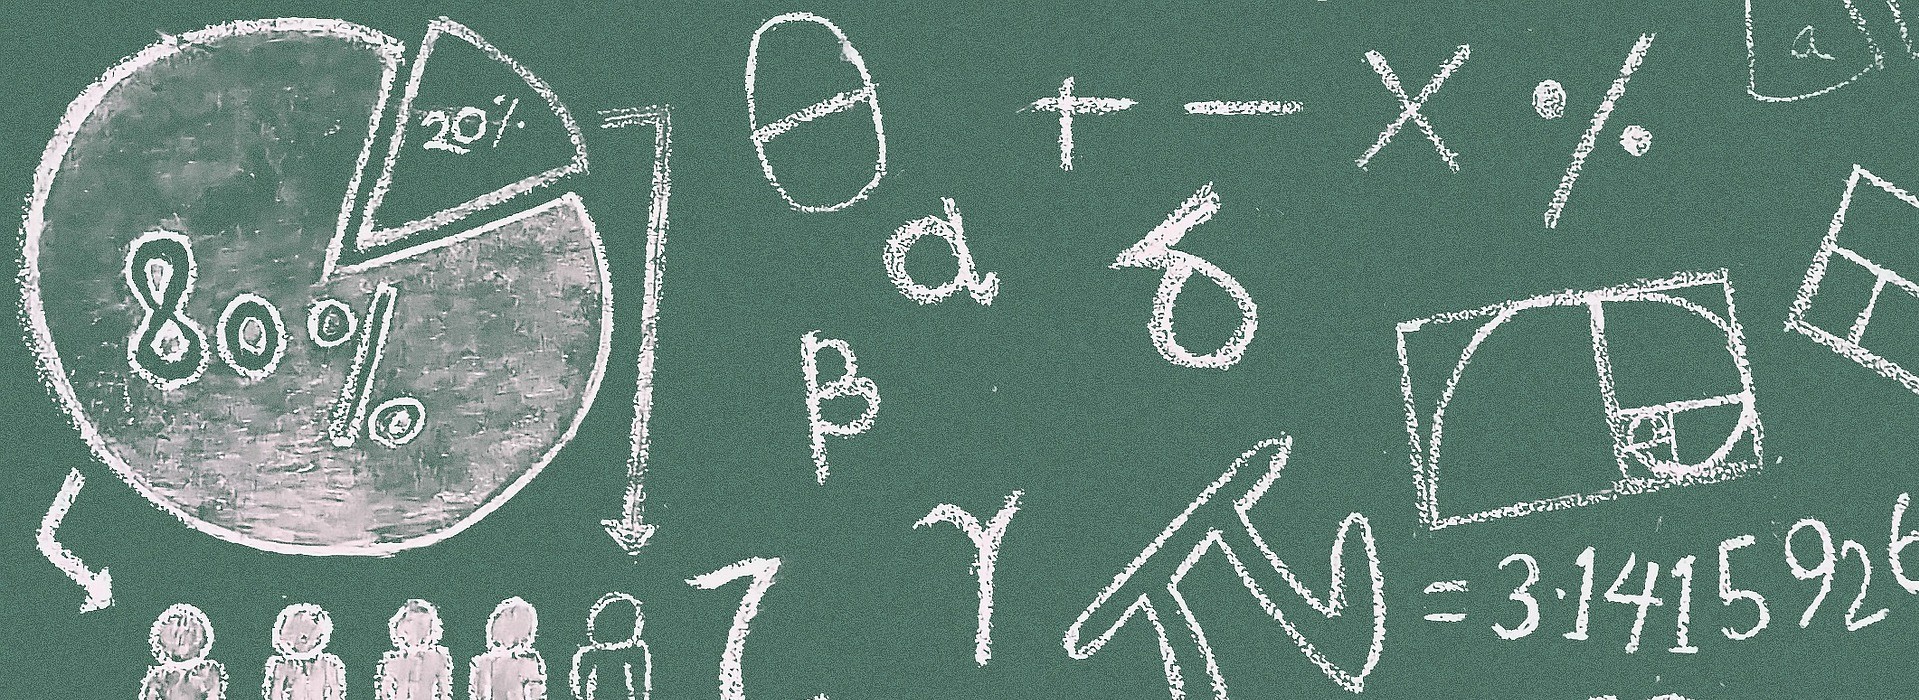 20%
80%
θ
+ − × %
a
α
δ
β
γ
π = 3.1415926
7